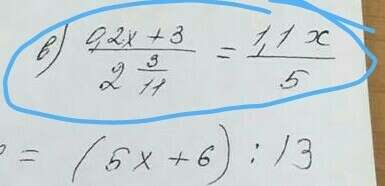 в) (0,2x + 3)/(2 3/11) = (1,1x)/5
= (5x + 6) : 13